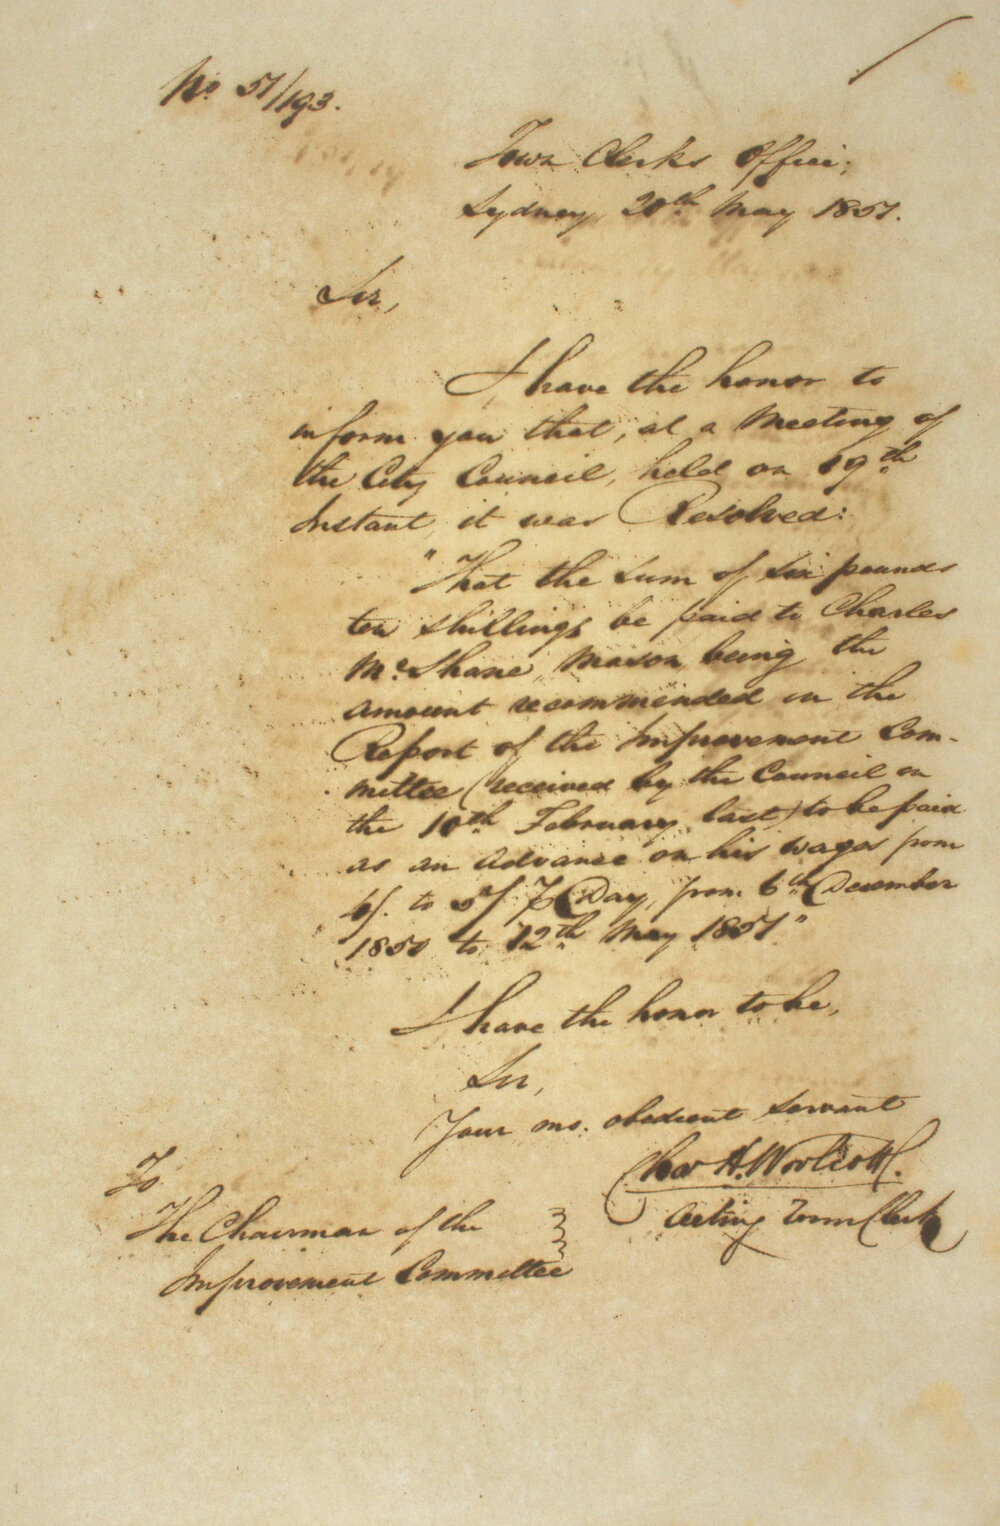 No. 51/193.
Town Clerks Office,
Sydney, 20th May 1851.
Sir,
I have the honor to
inform you that, at a Meeting of
the City Council, held on 19th
Instant, it was Resolved:
"That the sum of six pounds
ten shillings be paid to Charles
McShane, Mason, being the
amount recommended in the
Report of the Improvement Com-
mittee (received by the Council on
the 10th February last) to be paid
as an advance on his wages from
4/. to 5/. ⅌ Day, from 6th December
1850 to 12th May 1851"
I have the honor to be,
Sir,
Your mo. obedient servant
Chas H. Woolcott.
Acting Town Clerk
To
The Chairman of the
Improvement Committee